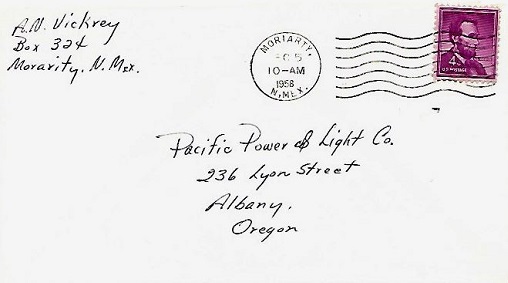 A.N. Vickrey
Box 324
Morarity, N. Mex.
MORIARTY,
5
10-AM
1958
N. MEX.
4¢
U.S. POSTAGE
Pacific Power & Light Co.
236 Lyon Street
Albany,
Oregon